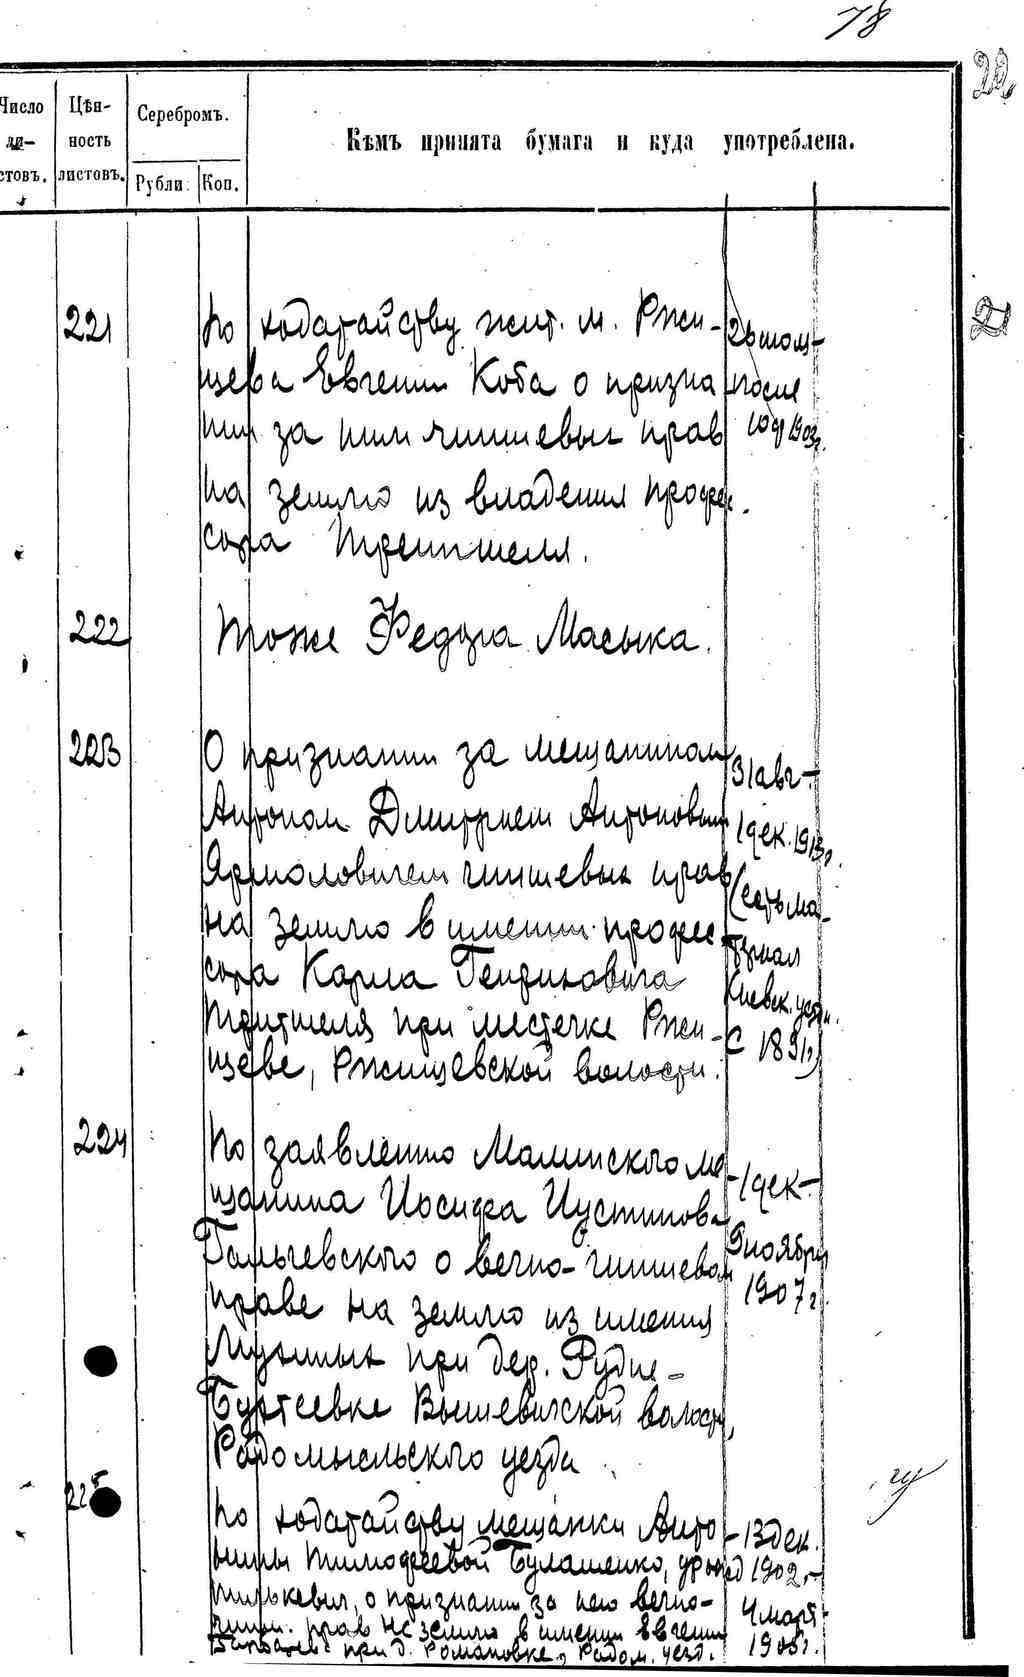 78
22
Число ли- стовъ. Цѣн- ность листовъ. Серебромъ. Рубли. Коп. Кѣмъ принята бумага и куда употреблена.
221 По ходатайству жит. м. Ржи-
щева Евгения Коба о призна
нии за ним чиншевых прав
на землю из владения профес-
сора Трейтшеля.
июля
1903г.
222 Тоже Федора Масыка.
223 О признании за мещанином
Антоном Дмитрием Антоновым
Ярмоловичем чиншевых прав
на землю в имении профес
сора Карла Генриховича
Тритшеля при местечке Ржи-
щеве, Ржищевской волости.
31 авг-
1 дек. 1913г.
(есть ма-
териал
Киевск. устан.
с 1891г)
224 По заявлению Малинского ме
щанина Иосифа Иустинова
Гальчевского о вечно-чиншевом
праве на землю из имения
при дер. Рудне-
Буртеевке Вышевичской волости,
Радомысльского уезда
1 дек-
9 ноября
1907 г.
225 По ходатайству мещанки Анто
нины Тимофеевой Булашенко, урожд
о признании за нею вечно-
чинш. прав на землю в имении Евгении
при д. Романовке, Радом. уезд.
-13 дек.
1902.-
4 март
1905г.